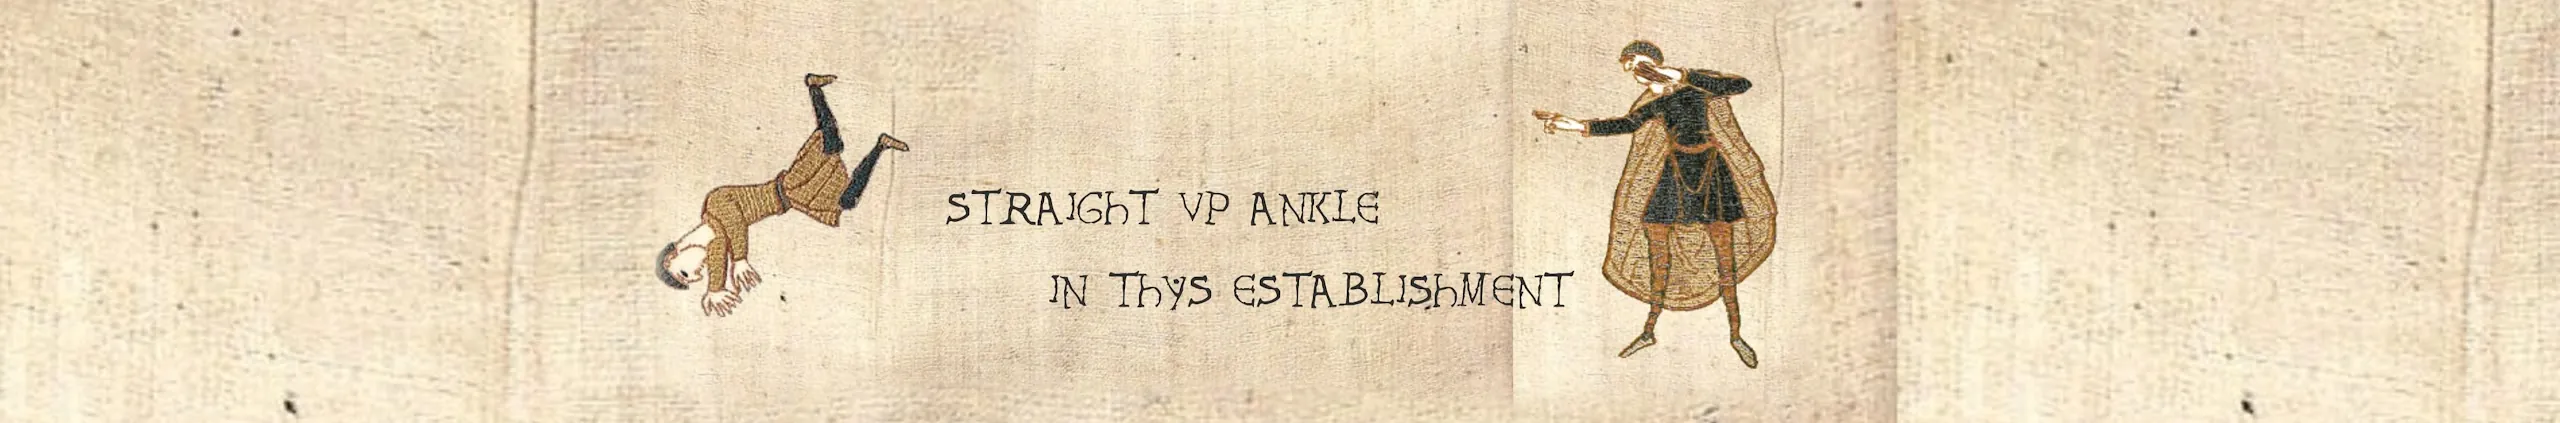 STRAIGhT VP ANKLE
IN ThYS ESTABLIShMENT